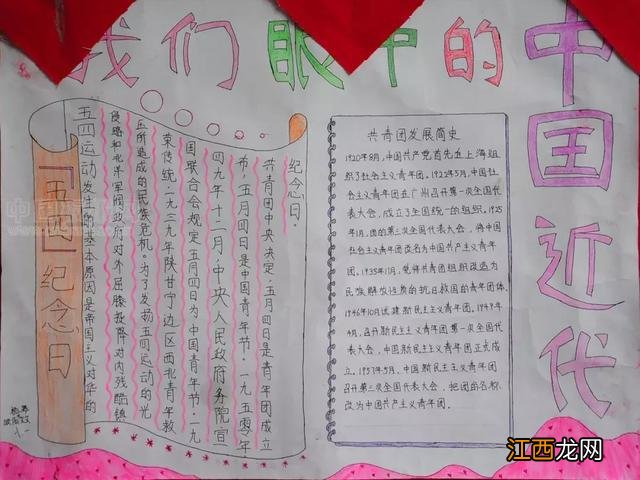 我们眼中的
中国近代
『五四』纪念日
五四运动发生的基本原因是帝国主义对华的
侵略和北洋军阀政府对外屈膝投降对内残酷镇
压所造成的民族危机。为了发扬五四运动的光
荣传统.一九三九年陕甘宁边区西北青年救
国联合会规定五月四日为中国青年节.一九
四九年十二月,中央人民政府务院宣
布,五月四日是中国青年节.一九五零年
共青团中央决定,五月四日是青年团成立
纪念日.
共青团发展简史
1920年8月,中国共产党首先在上海组
织了社会主义青年团。1922年5月,中国社
会主义青年团在广州召开第一次全国代
表大会,成立了全国统一的组织。1925
年1月,团的第三次全国代表大会,将中国
社会主义青年团改名为中国共产主义青年
团。1935年11月,党将共青团组织改造为
民族解放性质的抗日救国的青年团体。
1946年10月试建新民主主义青年团。1949年
4月,召开新民主主义青年团第一次全国代
表大会,中国新民主主义青年团正式成
立。1957年5月,中国新民主主义青年团
召开第三次全国代表大会,把团的名称
改为中国共产主义青年团。
江西龙网